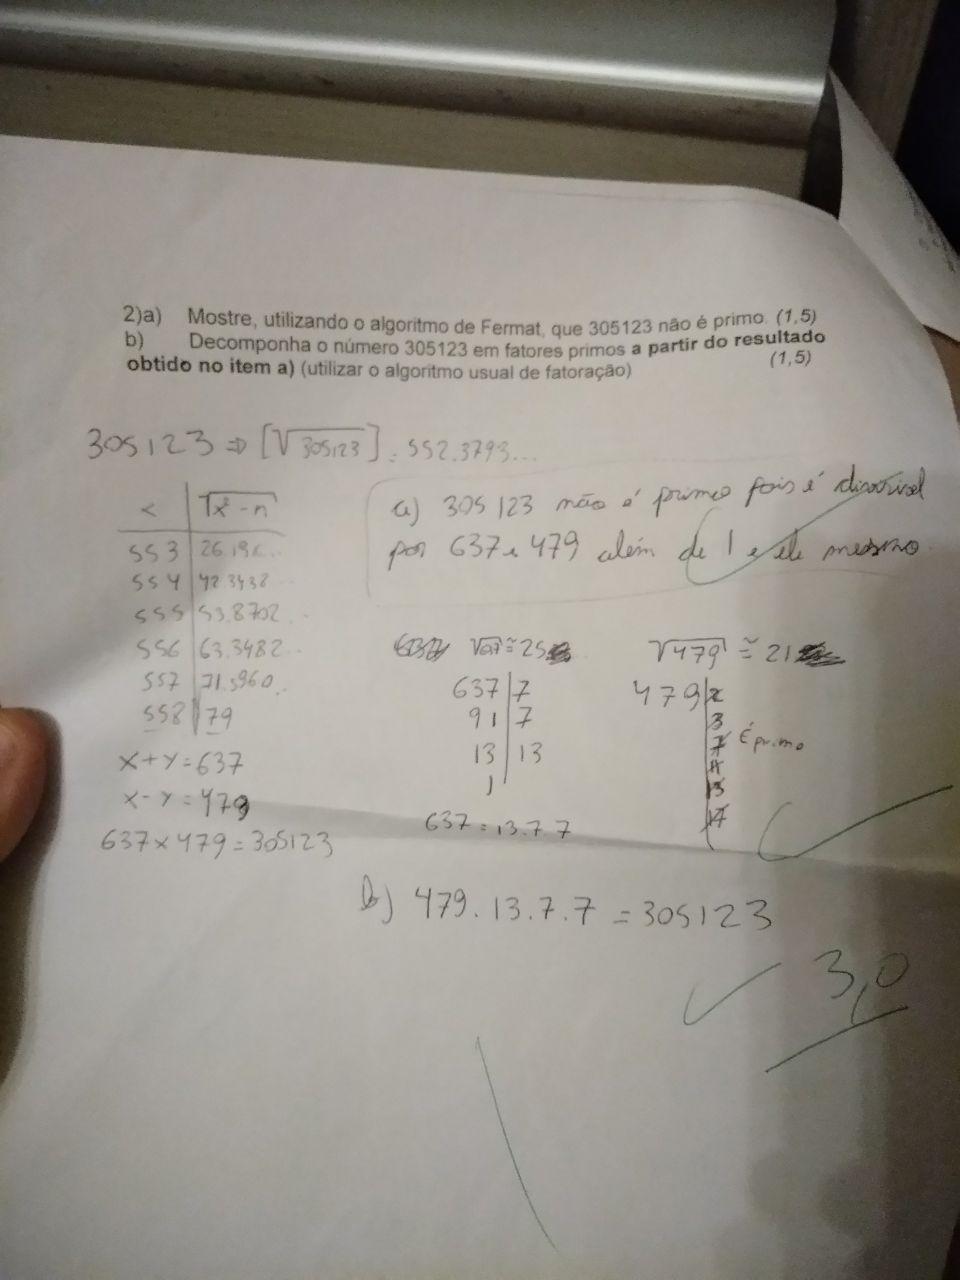 2)a) Mostre, utilizando o algoritmo de Fermat, que 305123 não é primo. (1,5)
b) Decomponha o número 305123 em fatores primos a partir do resultado
obtido no item a) (utilizar o algoritmo usual de fatoração) (1,5)
305123 ⇒ [√305123] = 552.3793...
x | √x²-n
553
554 | 42.3438...
555 | 53.8702...
556 | 63.3482...
557 | 71.5960...
558 | 79
x+y=637
x-y=479
637×479=305123
a) 305123 não é primo pois é divisível
por 637 e 479 além de 1 e ele mesmo.
≅ 25
637 | 7
91 | 7
13 | 13
1
637 = 13.7.7
√479 ≅ 21
479 | 2
3
7 É primo
11
13
17
b) 479.13.7.7 = 305123
3,0